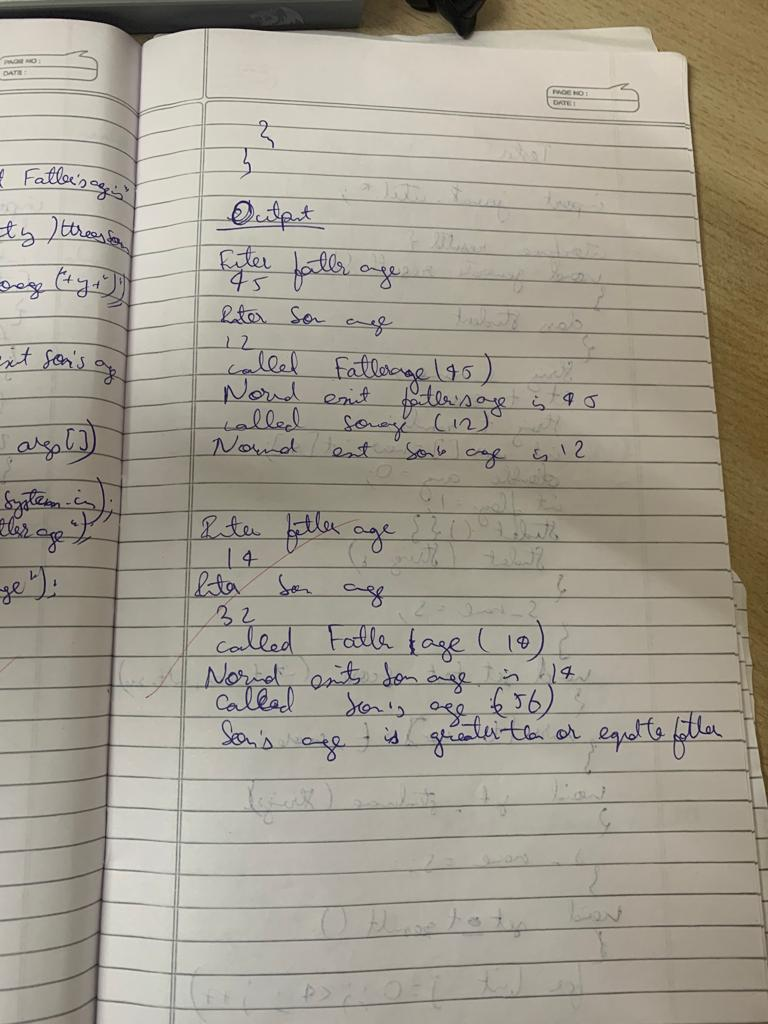 PAGE NO :
DATE :
Father's age is"
ty) throws
age ("+y+")")
exit Son's ag
args[])
System.in);
ther age");
ge");
PAGE NO :
DATE :
}
}
Output
Enter fathr age
45
Enter Son age
12
called Fatherage (45)
Normal exit father's age is 45
called sonage (12)
Normal exit Son's age is 12
Enter father age
14
Enter Son age
32
called Father age (18)
Normal exits Son age is 18
called Son's age (56)
Son's age is greater than or equal to father